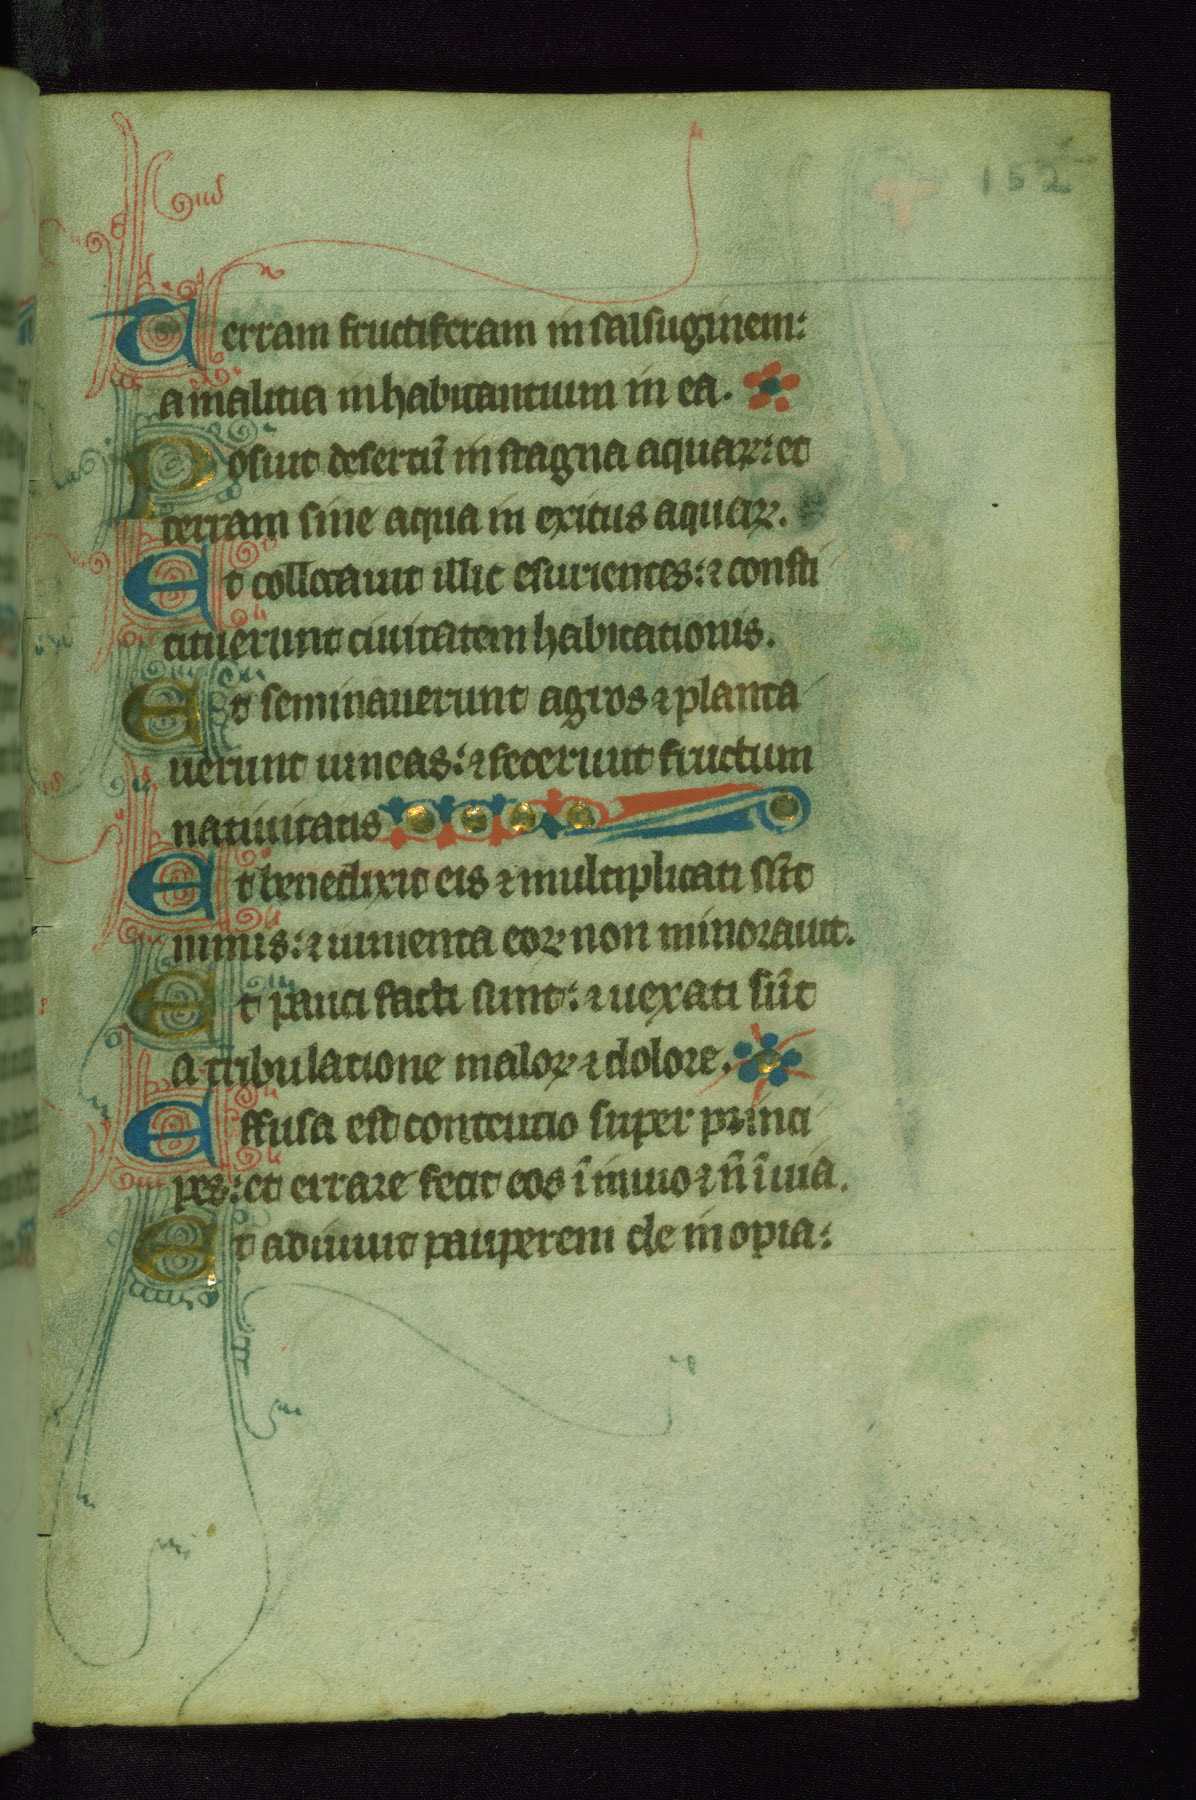 152
Terram fructiferam in salsuginem:
a malitia inhabitantium in ea.
Posuit desertū in stagna aquaꝝ: et
terram sine aqua in exitus aquaꝝ.
Et collocauit illic esurientes: ⁊ consti
tituerunt ciuitatem habitationis.
Et seminauerunt agros ⁊ planta
uerunt uineas: ⁊ fecerunt fructum
natiuitatis
Et benedixit eis ⁊ multiplicati sūt
nimis: ⁊ iumenta eoꝝ non minorauit.
Et pauci facti sunt: ⁊ uexati sūt
a tribulatione maloꝝ ⁊ dolore.
Effusa est contentio super princi
pes: et errare fecit eos ī inuio ⁊ n̄ ī uia.
Et adiuuit pauperem de inopia: